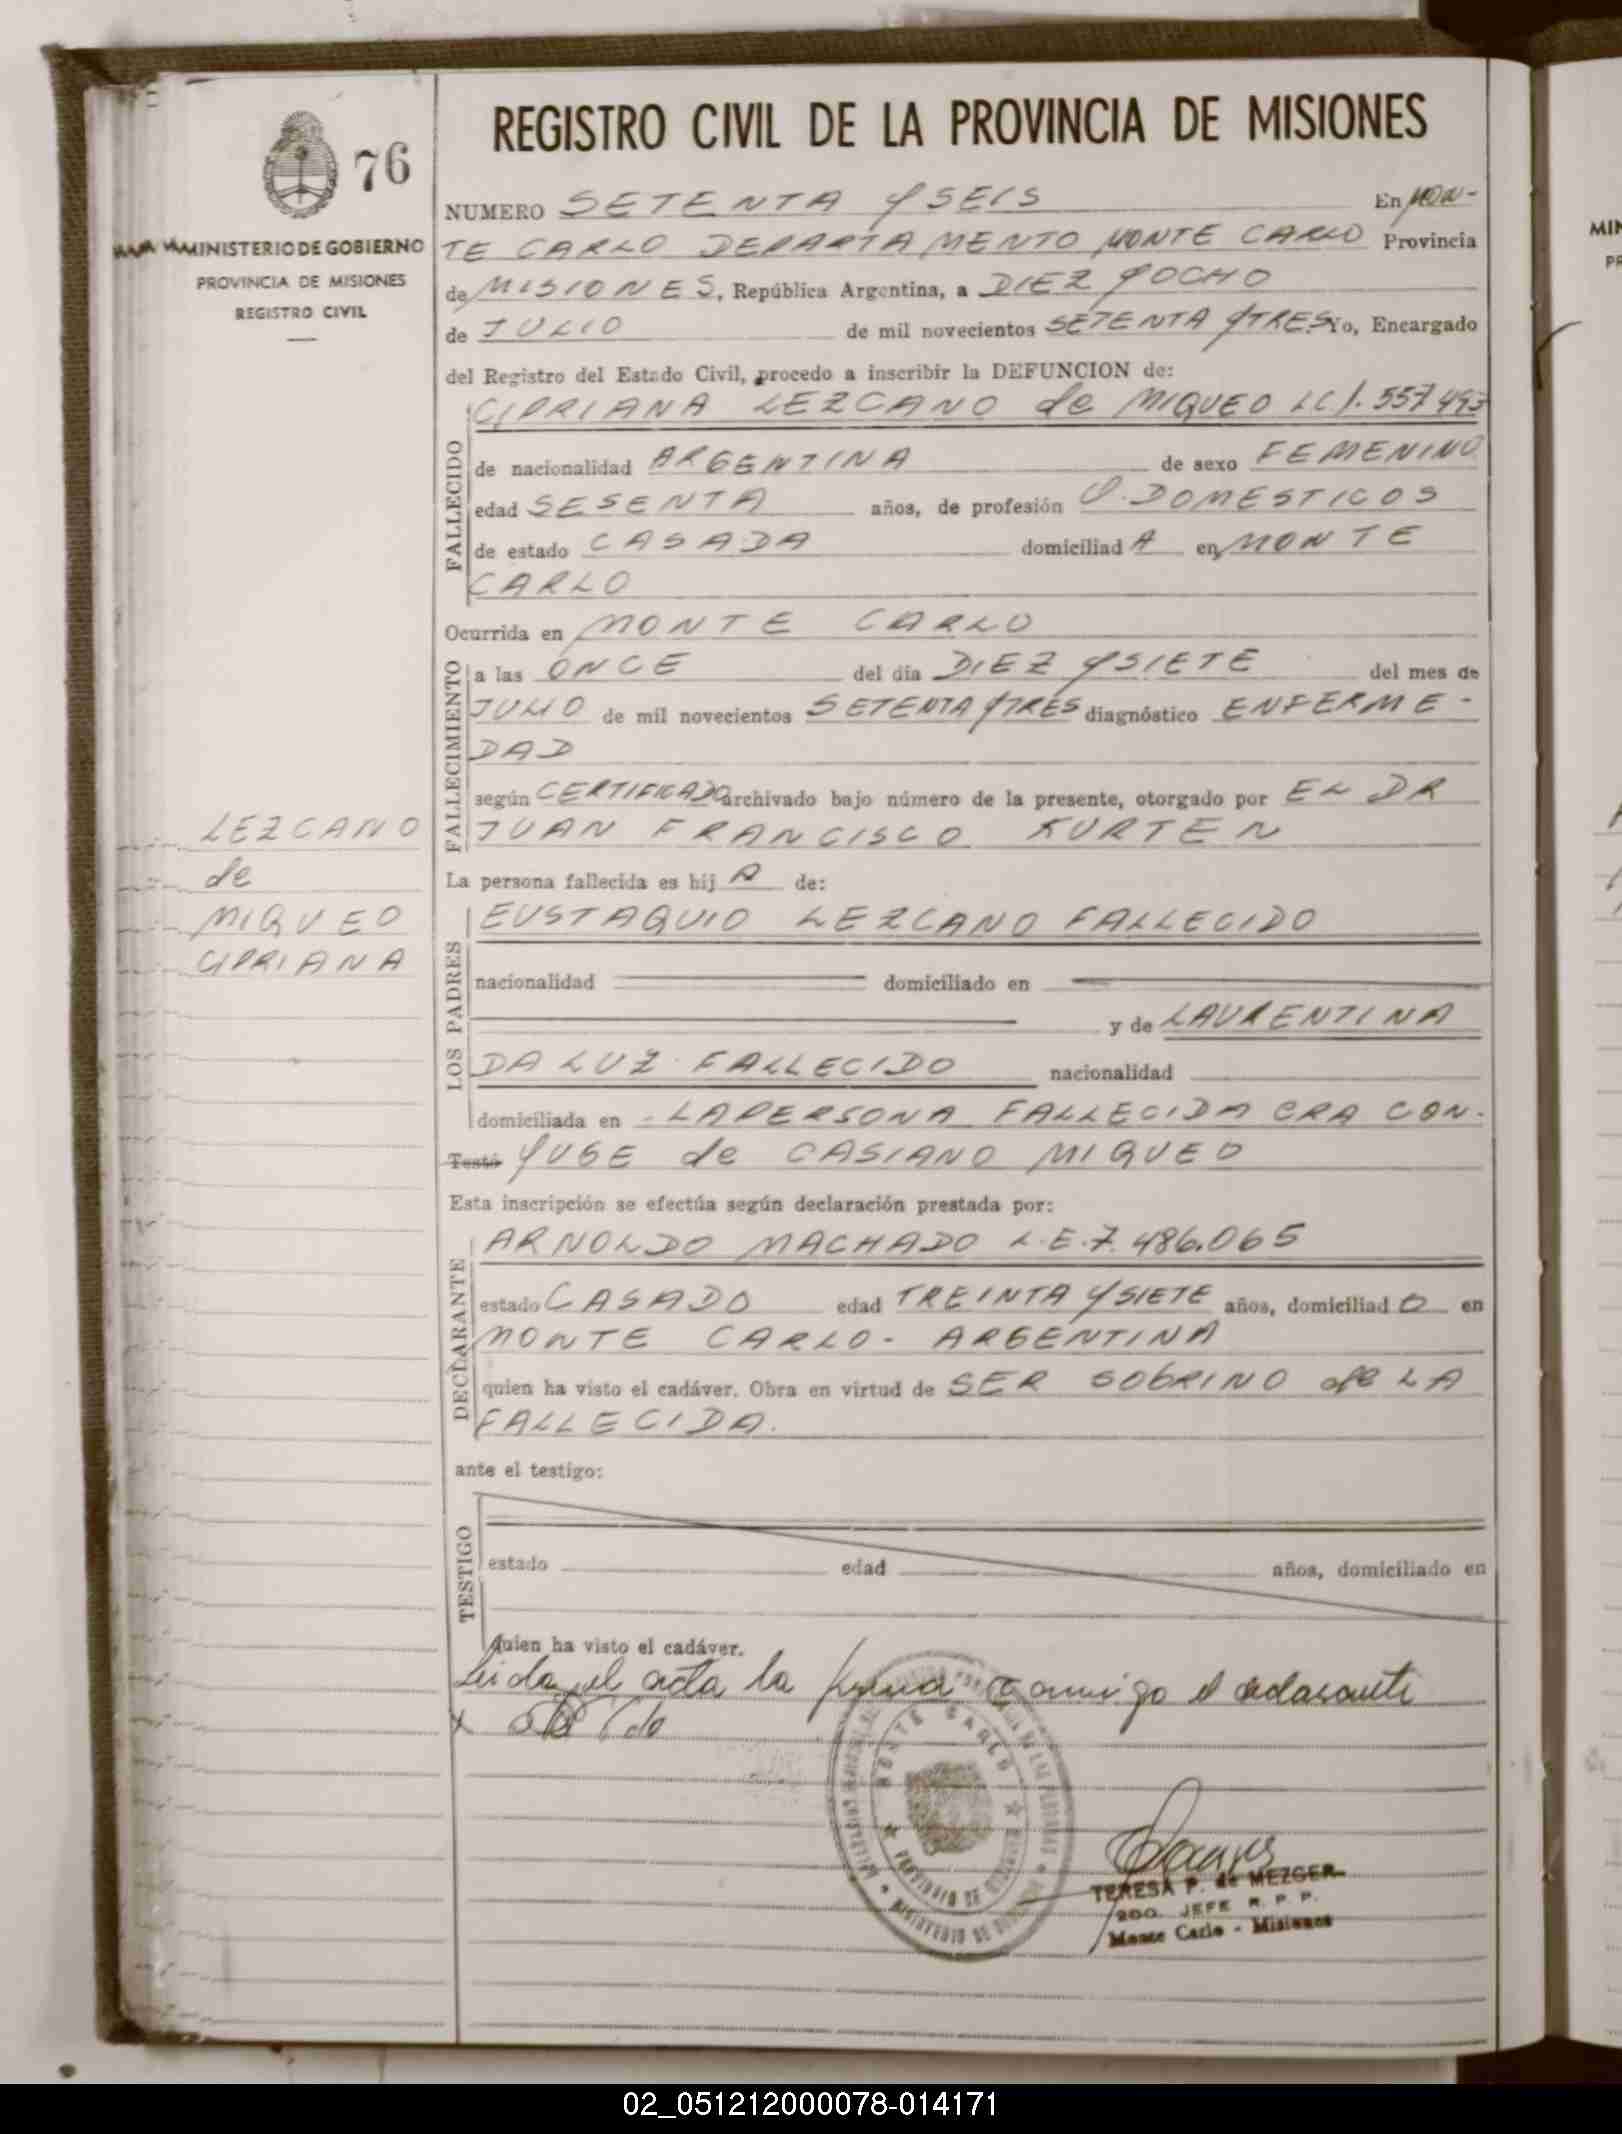 REGISTRO CIVIL DE LA PROVINCIA DE MISIONES
76
MINISTERIO DE GOBIERNO
PROVINCIA DE MISIONES
REGISTRO CIVIL
NUMERO SETENTA Y SEIS En MON-
TE CARLO DEPARTAMENTO MONTE CARLO Provincia
de MISIONES, República Argentina, a DIEZ Y OCHO
de JULIO de mil novecientos SETENTA Y TRES Yo, Encargado
del Registro del Estado Civil, procedo a inscribir la DEFUNCION de:
FALLECIDO
CIPRIANA LEZCANO de MIQUEO LC 1.557493
de nacionalidad ARGENTINA de sexo FEMENINO
edad SESENTA años, de profesión Q. DOMESTICOS
de estado CASADA domiciliad A en MONTE
CARLO
Ocurrida en MONTE CARLO
FALLECIMIENTO
a las ONCE del día DIEZ Y SIETE del mes de
JULIO de mil novecientos SETENTA Y TRES diagnóstico ENFERME-
DAD
según CERTIFICADO archivado bajo número de la presente, otorgado por EL DR
JUAN FRANCISCO KURTEN
LEZCANO
de
MIQUEO
CIPRIANA
La persona fallecida es hij A de:
LOS PADRES
EUSTAQUIO LEZCANO FALLECIDO
nacionalidad domiciliado en
y de LAURENTINA
DA LUZ FALLECIDO nacionalidad
domiciliada en - LA PERSONA FALLECIDA ERA CON-
Testó YUGE de CASIANO MIQUEO
Esta inscripción se efectúa según declaración prestada por:
DECLARANTE
ARNOLDO MACHADO L.E.7.486.065
estado CASADO edad TREINTA Y SIETE años, domiciliad O en
MONTE CARLO - ARGENTINA
quien ha visto el cadáver. Obra en virtud de SER SOBRINO de LA
FALLECIDA.
ante el testigo:
TESTIGO
estado edad años, domiciliado en
quien ha visto el cadáver.
Leida el acta la firma conmigo el
MONTE CARLO
PROVINCIA DE MISIONES
MINISTERIO DE GOBIERNO
TERESA P. de MEZGER
2DO. JEFE R. P. P.
Monte Carlo - Misiones
02_051212000078-014171